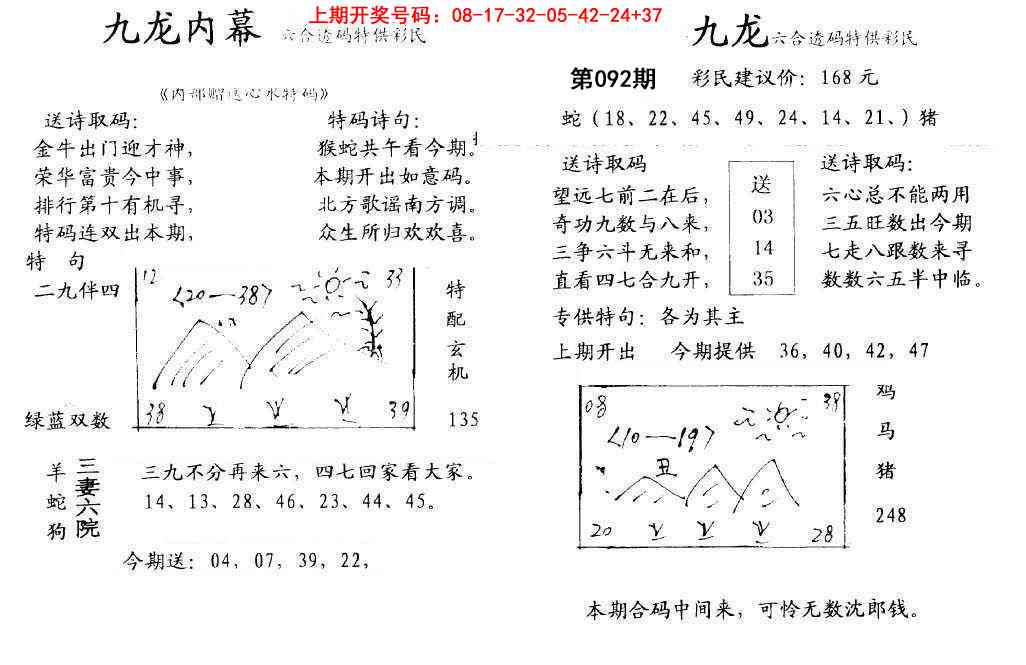 上期开奖号码：08-17-32-05-42-24+37
九龙内幕 六合透码特供彩民
《内部赠送心水特码》
送诗取码：
金牛出门迎才神，
荣华富贵今中事，
排行第十有机寻，
特码连双出本期，
特码诗句：
猴蛇共午看今期。
本期开出如意码。
北方歌谣南方调。
众生所归欢欢喜。
特 句
二九伴四
绿蓝双数
12
33
〈20—38〉
38
39
特
配
玄
机
135
羊
蛇
狗
三妻六院
三九不分再来六，四七回家看大家。
14、13、28、46、23、44、45。
今期送：04，07，39，22，
九龙 六合透码特供彩民
第092期 彩民建议价：168元
蛇（18、22、45、49、24、14、21、）猪
送诗取码
望远七前二在后，
奇功九数与八来，
三争六斗无来和，
直看四七合九开，
送
03
14
35
送诗取码：
六心总不能两用
三五旺数出今期
七走八跟数来寻
数数六五半中临。
专供特句：各为其主
上期开出 今期提供 36，40，42，47
08
39
〈10—19〉
丑
20
28
鸡
马
猪
248
本期合码中间来，可怜无数沈郎钱。